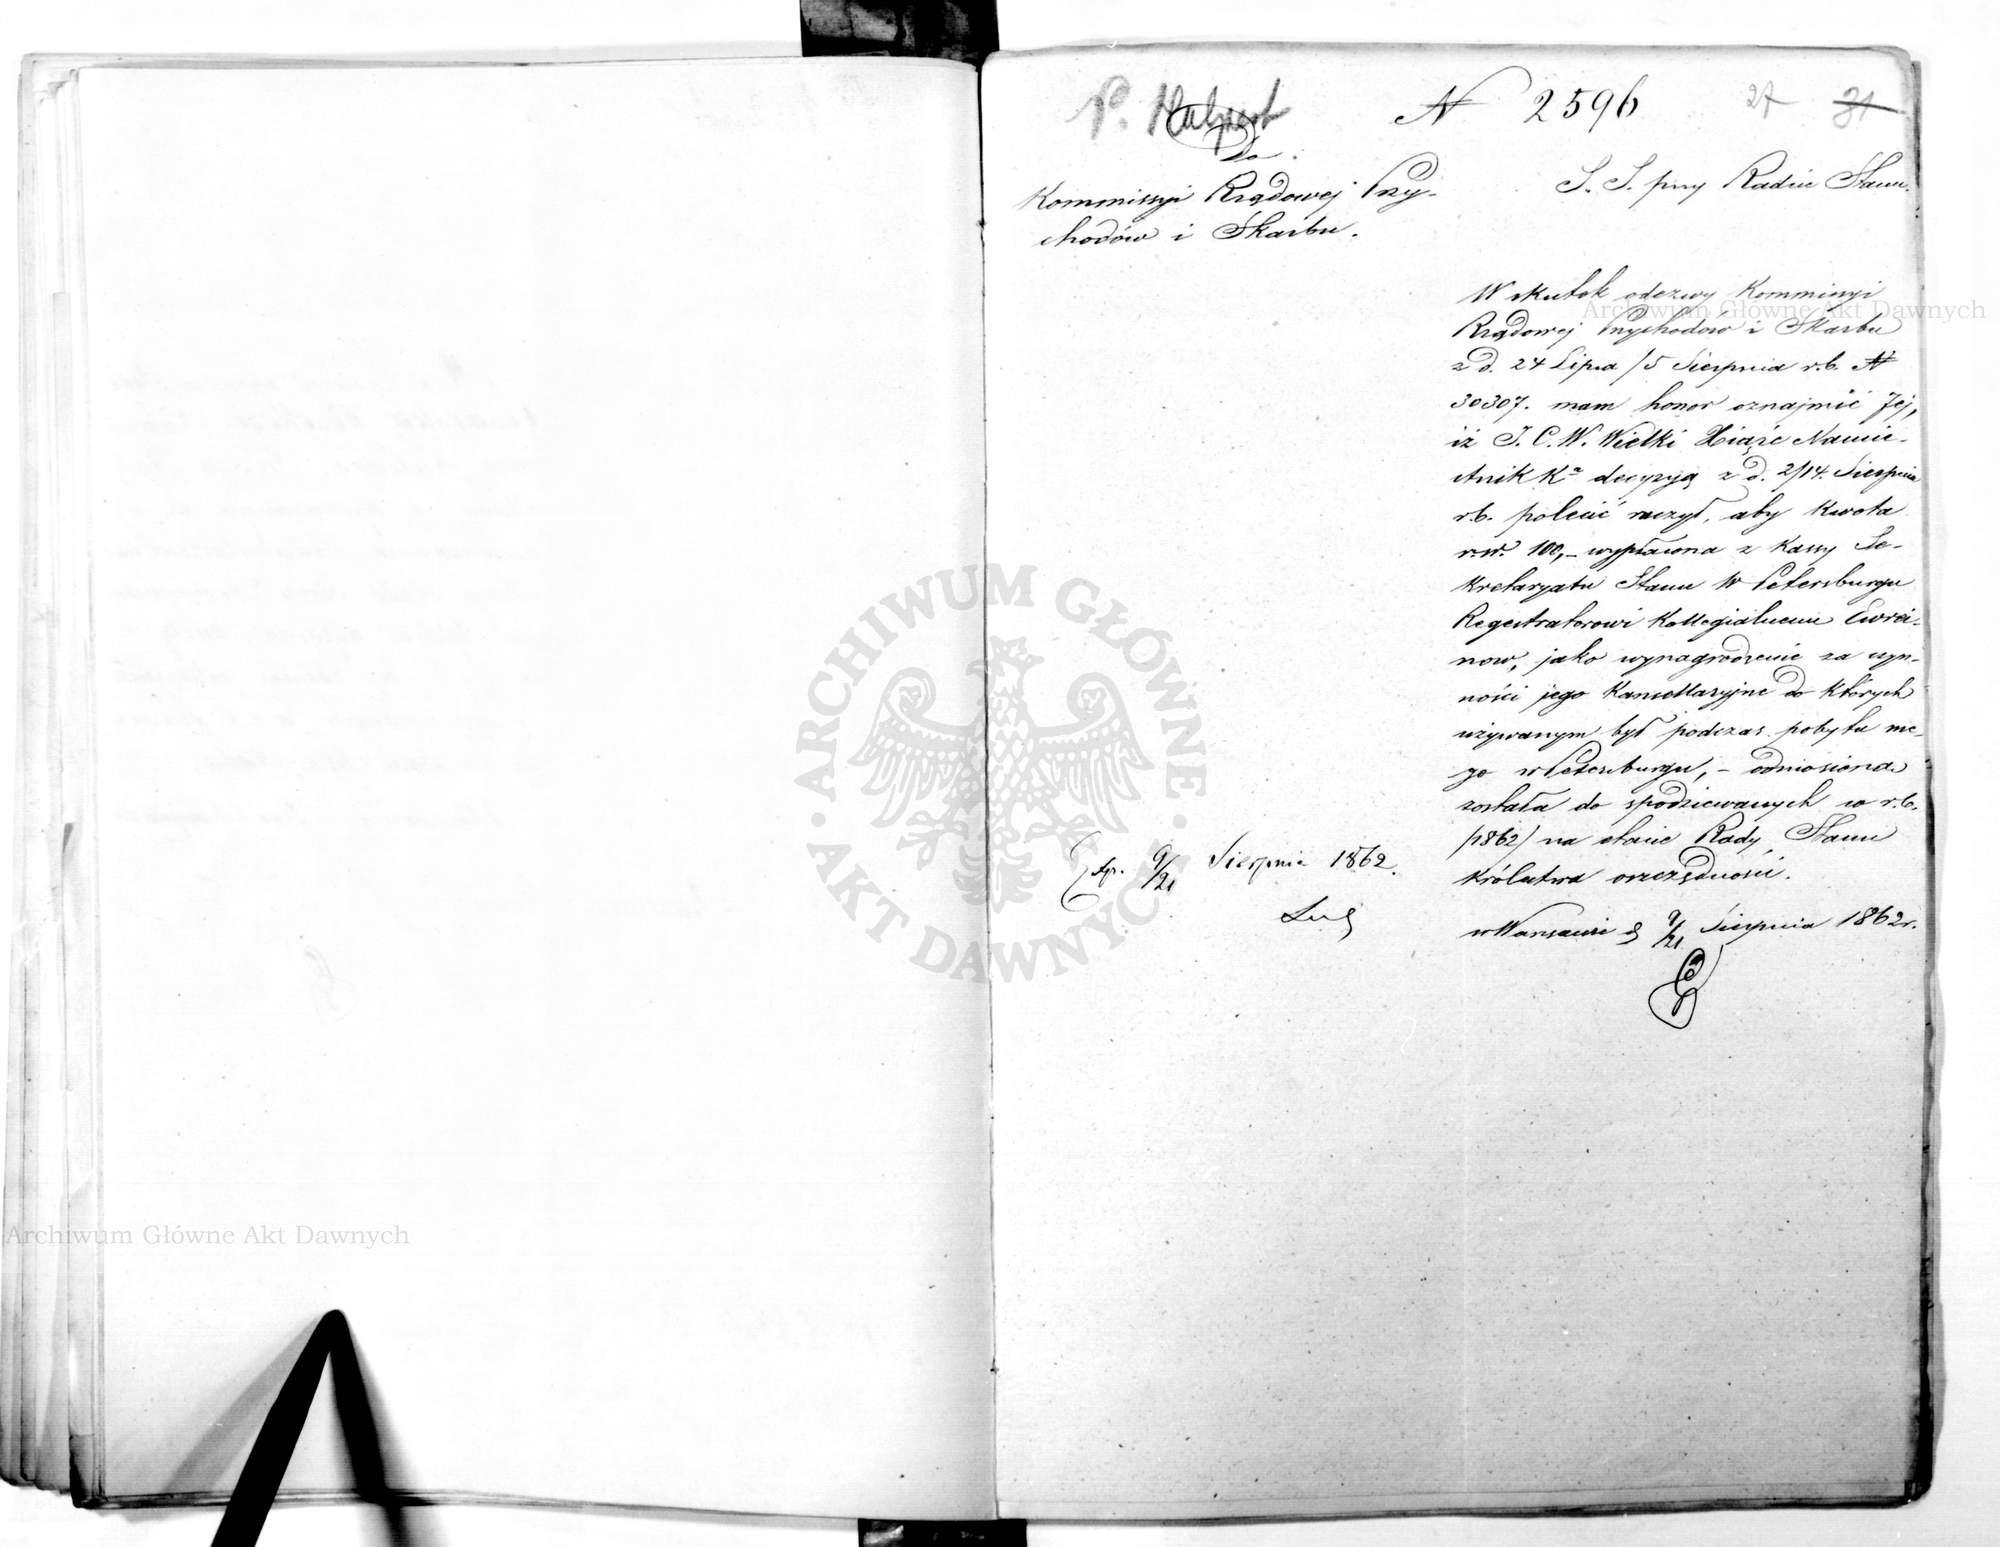 P. Halpert
N 2596
27 31
Do
Kommissyi Rządowej Przy-
chodów i Skarbu.
S. S. przy Radzie Stanu.
W skutek odezwy Kommissyi
Rządowej Przychodów i Skarbu
z d. 24 Lipca /5 Sierpnia r.b. N
30307. mam honor oznajmić Jej,
iż J. C. W. Wielki Xiąże Namie-
stnik Kr decyzyą z d. 2/14. Sierpnia
r.b. polecić raczył, aby kwota
rs. 100,- wypłacona z Kassy Se-
kretaryatu Stanu w Petersburgu
Regestratorowi Kollegialnemu
now, jako wynagrodzenie za czyn-
ności jego Kancellaryjne do których
używanym był podczas pobytu me-
go w Petersburgu, - odniesiona
została do spodziewanych w r.b.
/1862/ na etacie Rady Stanu
Królestwa oszczędności.
w Warszawie d 9/21 Sierpnia 1862 r.
Exp. 9/21 Sierpnia 1862.
ARCHIWUM GŁÓWNE
AKT DAWNYCH
Archiwum Główne Akt Dawnych
Archiwum Główne Akt Dawnych